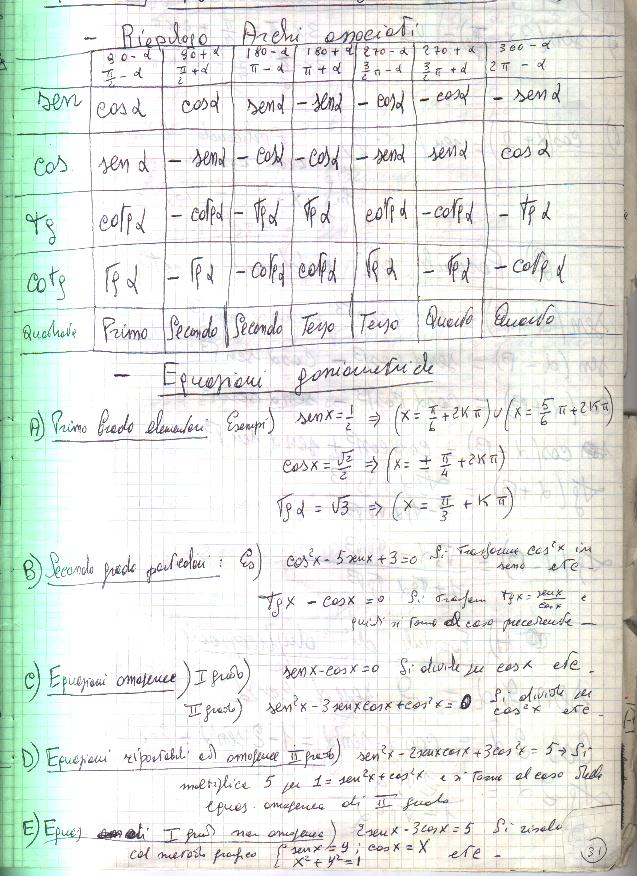 - Riepilogo Archi associati
90-α 90+α 180-α 180+α 270-α 270+α 360-α
π/2-α π/2+α π-α π+α 3/2π-α 3/2π+α 2π-α
sen cosα cosα senα -senα -cosα -cosα -senα
cos senα -senα -cosα -cosα -senα senα cosα
tg cotgα -cotgα -tgα tgα cotgα -cotgα -tgα
cotg tgα -tgα -cotgα cotgα tgα -tgα -cotgα
Quadrante Primo Secondo Secondo Terzo Terzo Quarto Quarto
- Equazioni goniometriche
A) Primo grado elementari Esempi) senx=1/2 ⇒ (x=π/6+2Kπ)∪(x=5/6π+2Kπ)
cosx=√2/2 ⇒ (x=±π/4+2Kπ)
tgα=√3 ⇒ (x=π/3+Kπ)
B) Secondo grado particolari: Es) cos²x-5senx+3=0 Si trasforma cos²x in
seno etc-
tgx-cosx=0 Si trasform tgx=senx/cosx e
quindi si torna al caso precedente-
C) Equazioni omogenee) I grado) senx-cosx=0 Si divide per cosx etc-
II grado) sen²x-3senxcosx+cos²x=0 Si divide per
cos²x etc-
D) Equazioni riportabili ad omogenee II grado) sen²x-2senxcosx+3cos²x=5→Si
moltiplica 5 per 1=sen²x+cos²x e si torna al caso della
equaz. omogenea di II grado
E) Equaz di I grado non omogenee) 2senx-3cosx=5 Si risolve
col metodo grafico {senx=y; cosx=X etc-
x²+y²=1
31